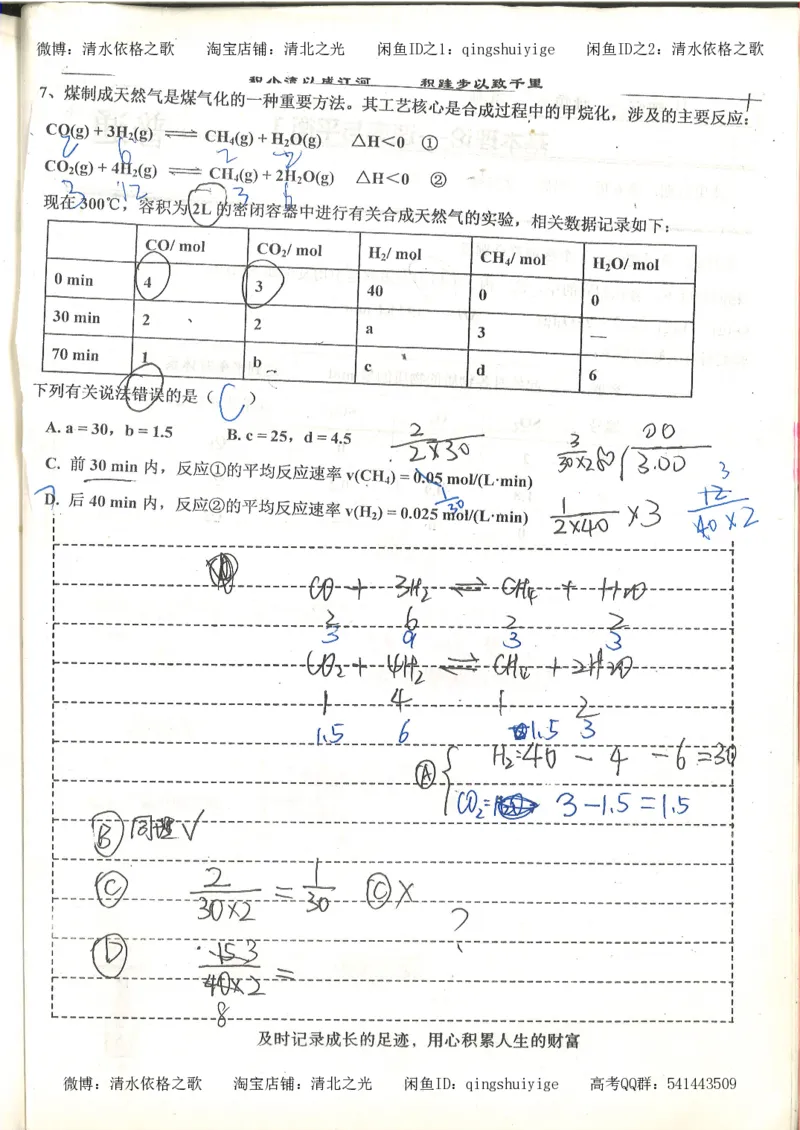 微博：清水依格之歌 淘宝店铺：清北之光 闲鱼ID之1：qingshuiyige 闲鱼ID之2：清水依格之歌
积小流以成江河 积跬步以致千里
7、煤制成天然气是煤气化的一种重要方法。其工艺核心是合成过程中的甲烷化，涉及的主要反应：
CO(g) + 3H₂(g) ⇌ CH₄(g) + H₂O(g) △H＜0 ①
2 6 2 2
CO₂(g) + 4H₂(g) ⇌ CH₄(g) + 2H₂O(g) △H＜0 ②
3 12 3 6
现在 300℃，容积为 2L 的密闭容器中进行有关合成天然气的实验，相关数据记录如下：
CO/ mol CO₂/ mol H₂/ mol CH₄/ mol H₂O/ mol
0 min 4 3 40 0 0
30 min 2 2 a 3 —
70 min 1 b c d 6
下列有关说法错误的是（ C ）
A. a = 30，b = 1.5 B. c = 25，d = 4.5
C. 前 30 min 内，反应①的平均反应速率 v(CH₄) = 0.05 mol/(L·min)
D. 后 40 min 内，反应②的平均反应速率 v(H₂) = 0.025 mol/(L·min)
2/2×30
1/30
1/2×40 ×3
CO + 3H₂ ⇌ CH₄ + H₂O
2 6 2 2
3 9 3 3
CO₂ + 4H₂ ⇌ CH₄ + 2H₂O
1 4 1 2
1.5 6 1.5 3
Ⓐ H₂=40 - 4 - 6 =30
CO₂= 3 -1.5 =1.5
Ⓑ 同理 √
Ⓒ 2/30×2 = 1/30 Ⓒ ×
?
Ⓓ
40×2 =
8
及时记录成长的足迹，用心积累人生的财富
微博：清水依格之歌 淘宝店铺：清北之光 闲鱼ID：qingshuiyige 高考QQ群：541443509